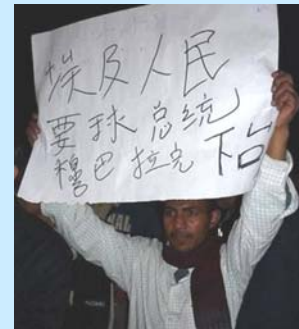 埃及人民
要求总统
穆巴拉克下台